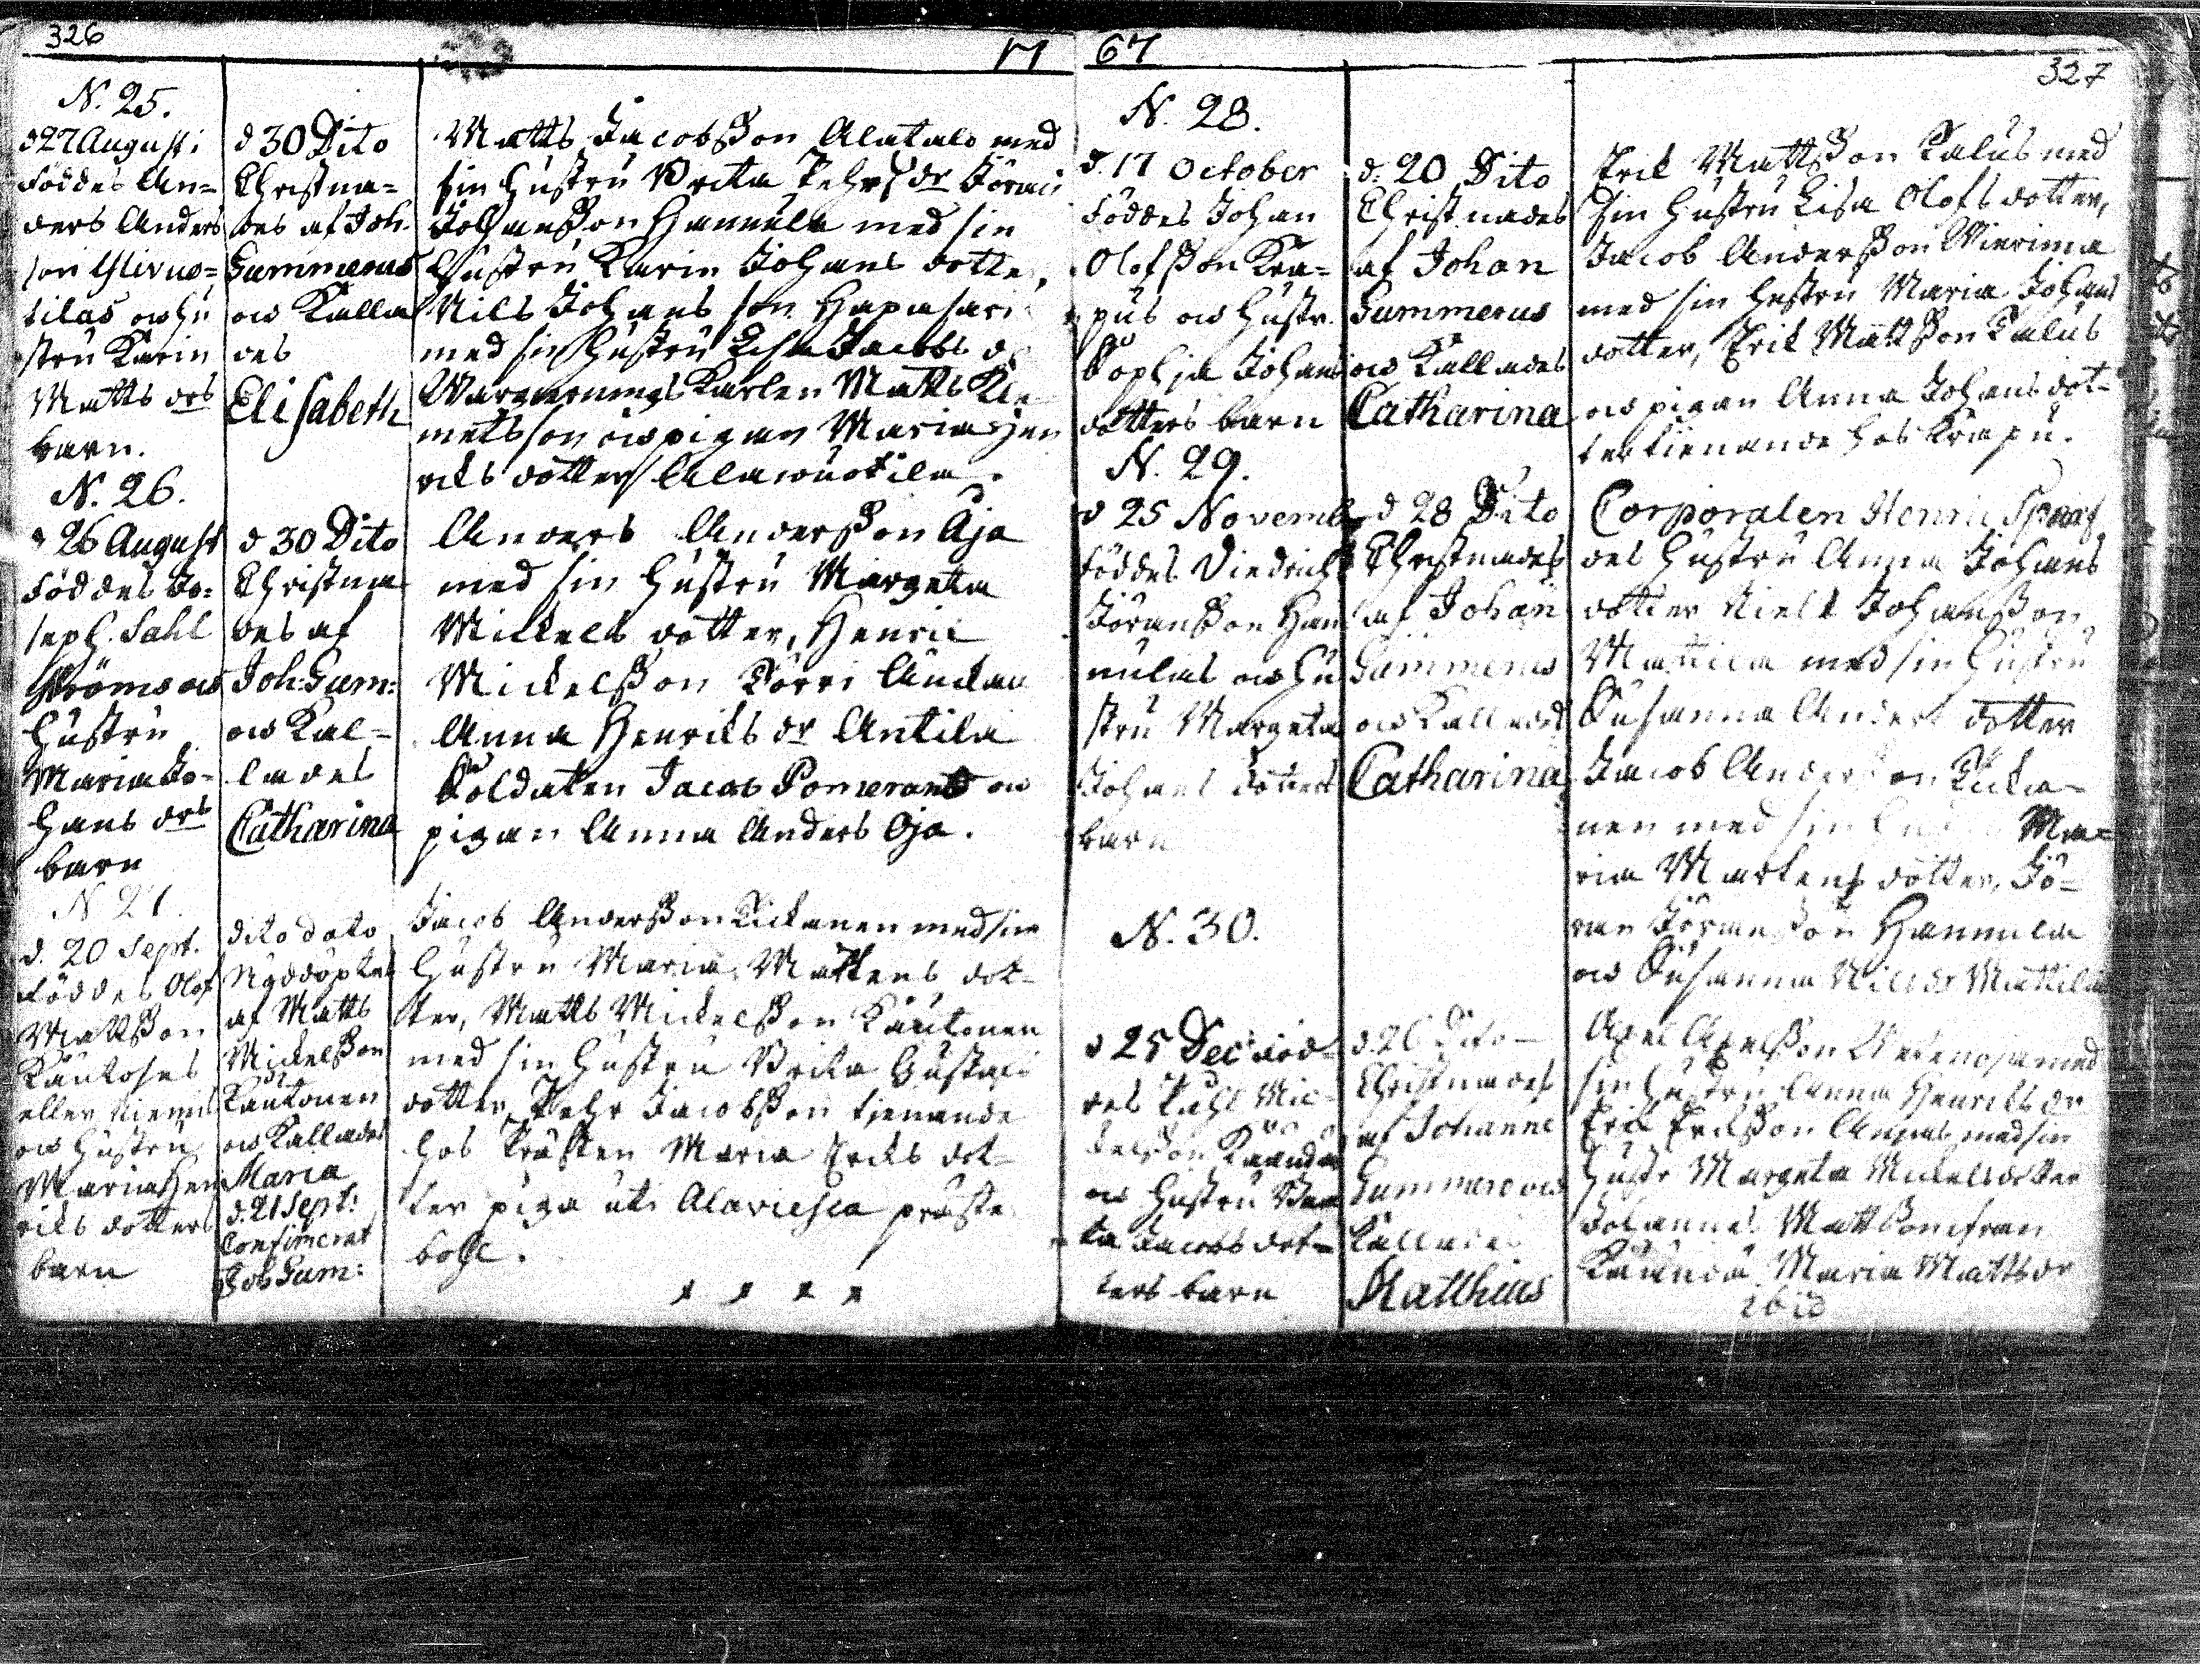 326
17
N. 25.
d 27 Augusti
föddes An=
ders Anders
son
tilas och hu
stru Karin
Matts drs
barn.
d 30 Dito
Christna=
des af Joh.
Gummerus
och Kalla
des
Elisabeth
Matts Jacobsson Alatalo med
sin hustru Brita Pehrs dr Jöran
Johansson Hannula med sin
hustru Karin Johans dotter,
Nils Johans son Hapasari
med sin hustru Lisa Jacobs d
Wargierings Karlen Matts Kle
metsson och pigan Maria Hen
riks dotter Alawuotila.
N. 26.
d 26 August
föddes Jo=
seph Sahl
ströms och
hustru
Maria Jo=
hans drs
barn
d 30 Dito
Christna
des af
Joh: Gum:
och Kal=
lades
Catharina
Anders Andersson Oja
med sin hustru Margeta
Mickels dotter, Henric
Mickelsson Törri Änckan
Anna Henriks dr Antila
Soldaten Jacob Pomerants och
pigan Anna Anders Oja.
N 27.
d. 20 Sept.
föddes Olof
Mattsson
Kautoses
eller Niemis
och hustru
Maria Hen
riks dotters
barn
dito dato
Nöddöptes
af Matts
Mickelsson
Kautonen
och Kallades
Maria
d. 21 Sept:
Confirmerat
Joh Gum:
Jacob Andersson Kickanen med sin
hustru Maria Mårtens dot=
ter, Matts Mickelsson Kautonen
med sin hustru Brita Gustavs
dotter, Pehr Jacobsson tienande
hos Prästen Maria Ericks dot=
ter piga uti Alavieska präste
bohl.
67
327
N. 28.
d. 17 October
föddes Johan
Olofsson Kra=
pus och hustr.
Sophia Johans
dotters barn
d. 20 Dito
Christnades
af Johan
Gummerus
och Kallades
Catharina
Erik Mattsson Kalus med
sin hustru Lisa Olofs dotter,
Jacob Andersson Vierimaa
med sin hustru Maria Johans
dotter, Erik Mattsson Kalus
och pigan Anna Johans dot=
ter tienande hos Krapu.
N. 29.
d 25 Novemb
föddes Diedrich
Jöransson Han
nulas och hu
stru Margeta
Johans dotters
barn
d 28 Dito
Christnades
af Johan
Gummerus
och Kallades
Catharina
Corporalen Henric
des hustru Anna Johans
dotter Niels Johansson
Mattila med sin hustru
Susanna Anders dotter
Jacob Andersson Kicka=
nen med sin Ma=
ria Mårtens dotter, Jö=
ran Jöransson Hannula
och Susanna Nils dr Mattila
N. 30.
d 25 Dec: föd=
des Påhl Mic=
kelsson Käändä
och hustru Bri
ta Jacobs dot=
ters barn
d. 26 Dito
Christnades
af Johanne
Gummero och
Kallades
Matthias
Axel Axelsson med
sin hustru Anna Henriks dr
Erik Eriksson med sin
hustr Margeta Mickels dotter
Johannes Mattsson ifrån
Käändä Maria Matts dr
ibid